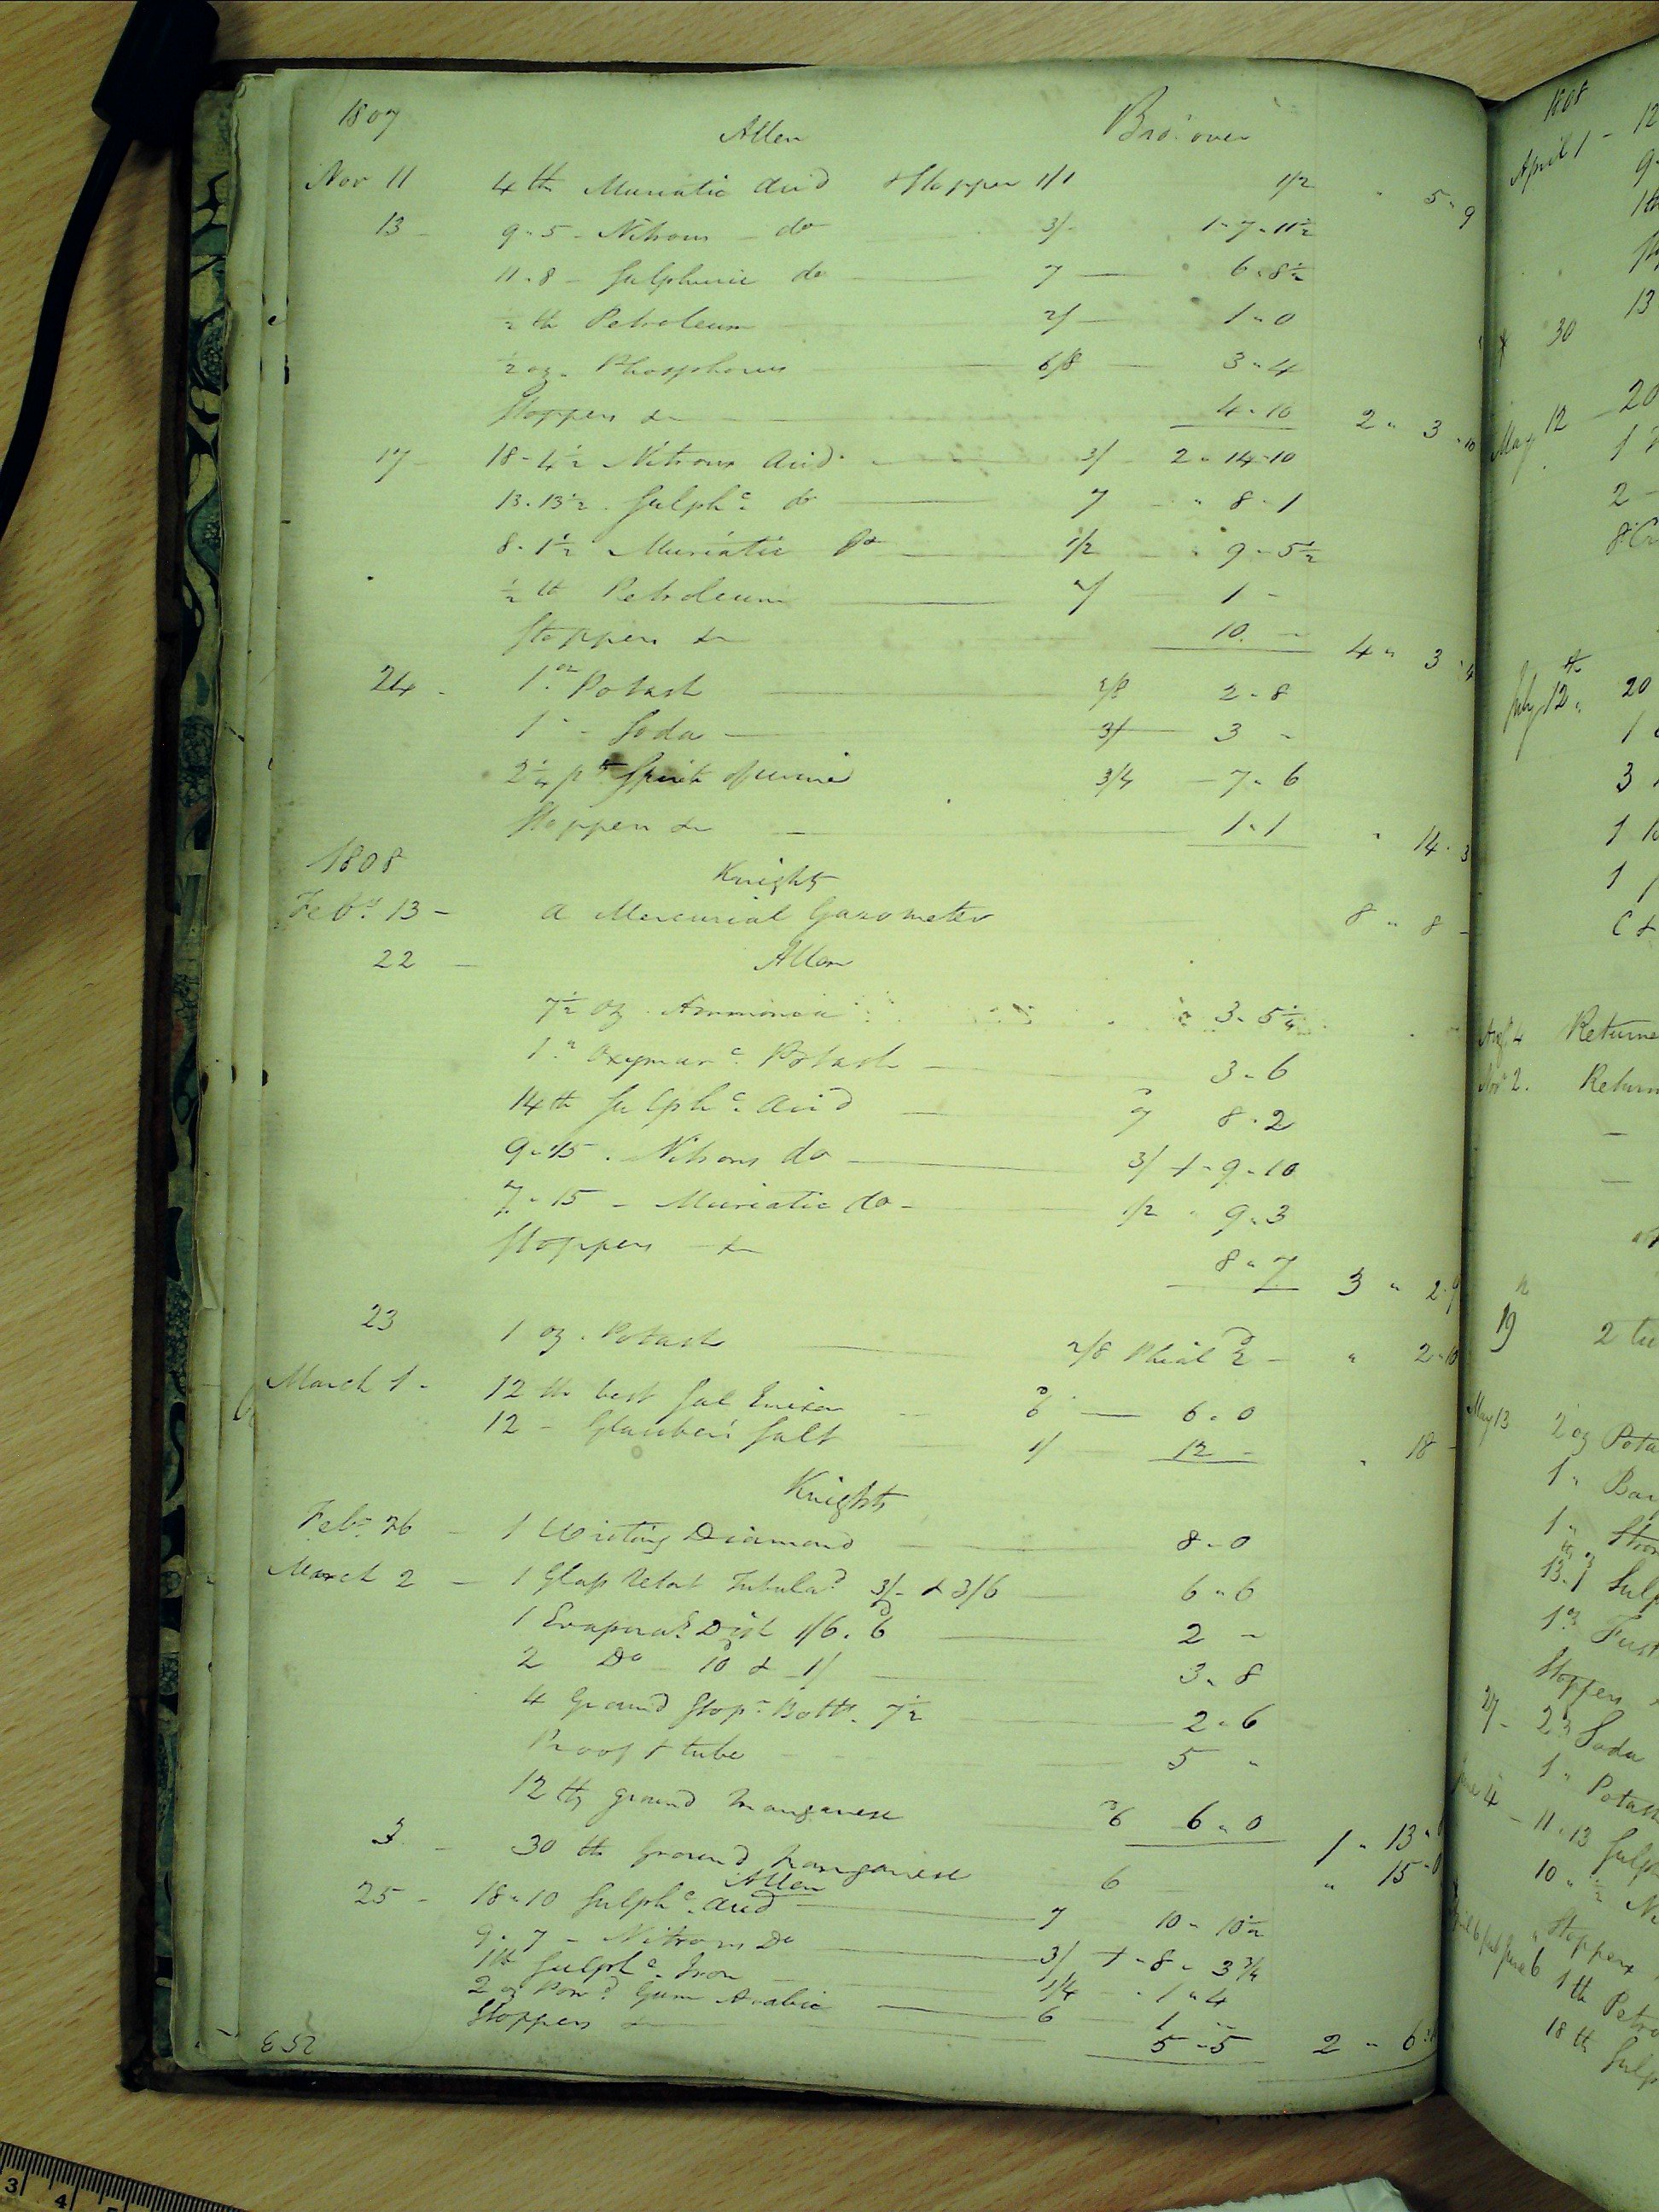 1807 Allen Bro: over
Nov 11 4 lb Muriatic Acid & Stopper 1/1 1/2 " 5 " 9
13 - 9 - 5 - Nitrous do 3/- 1 - 7 - 11½
11 - 8 - Sulphuric do 7 6 " 8½
½ lb Petroleum 2/ 1 " 0
½ oz. Phosphorus 6/8 3 " 4
Stoppers &c 4 - 10 2 " 3 " 10
17 - 18 - 4½ Nitrous Acid 3/ 2 " 14 - 10
13 - 13½ Sulphc. do 7 " 8 - 1
8 - 1½ Muriatic Do 1/2 " 9 - 5½
½ lb Petroleum 2/ 1 -
Stoppers &c 10 - 4 " 3 " 4
24 - 1 oz Potash 2/8 2 - 8
1 " - Soda 3/ 3 -
2¼ pts Spirit of wine 3/4 7 " 6
Stoppers &c 1 " 1 " 14 " 3
1808 Knights
Feby. 13 - A Mercurial Gazometer 8 " 8 -
22 - Allen
7½ oz Ammonia 3 - 5¼
1 " Oxymurc. Potash 3 - 6
14 lb Sulphc. Acid 7d 8 - 2
9 - 15 - Nitrous do 3/ 1 - 9 - 10
7 - 15 - Muriatic do - 1/2 " 9 " 3
Stoppers &c 8 " 7 3 " 2 " 9
23 1 oz. Potash 2/8 Phial 2d - " 2 " 10
March 1 - 12 lb best Sal Enixon 6d 6 " 0
12 - Glauber's Salt 1/ 12 - " 18 -
Knights
Feby. 26 - 1 Writing Diamond 8 - 0
March 2 - 1 Glass Retort Tubulad 3/- & 3/6 6 " 6
1 Evaporag Dish 1/6. 6d 2 -
2 Do 10d & 1/ 3 " 8
4 Ground Stopr. Botts. 7½ 2 " 6
Proof & tube 5 "
12 lb ground Manganese 6d 6 " 0 1 " 13 "
3 - 30 lb Ground Manganese 6 " 15 - 0
Allen
25 - 18 " 10 Sulphc. Acid 7 10 " 10½
9 - 7 - Nitrous Do 3/ 1 - 8 " 3¾
1 lb Sulphc. Iron 1/4 " 1 " 4
2 oz Powd Gum Arabic 6 1 "
Stoppers &c 5 " 5 2 " 6
1808
April 1 -
30
May 12 20
July 12 " 20
Augt 4 Returne
Nov 2. Return
19
May 13 2 oz Pota
1 "
Stoppers
27 - Soda
1 " Potas
June 4 - 11 " 13 Sulph
10 " ½ Ni
Stoppers
1 lb Petro
18 lb Sulp